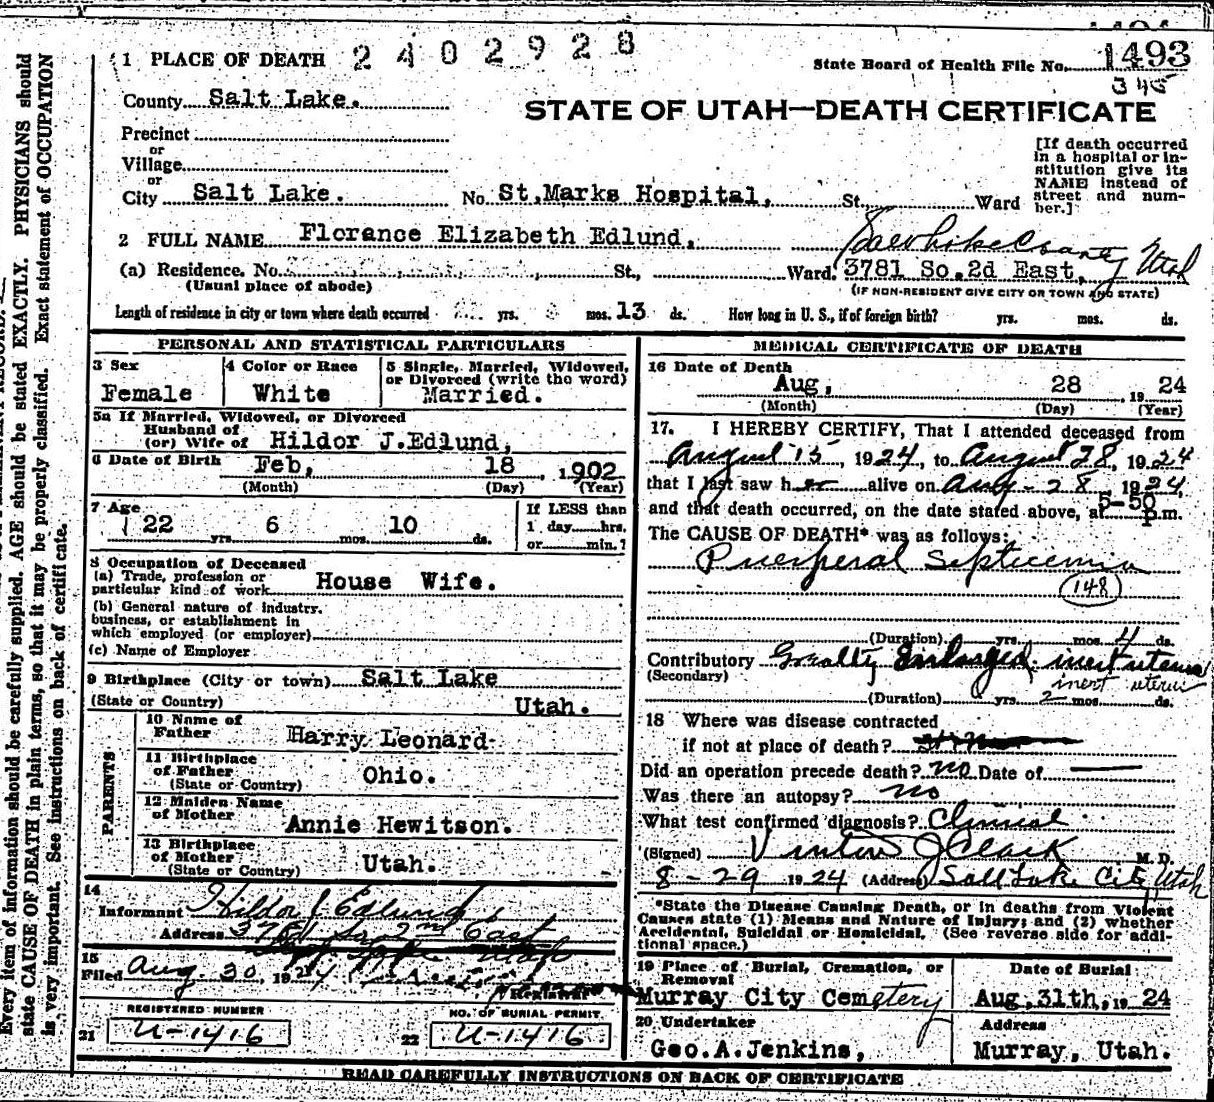 1 PLACE OF DEATH 2402928
State Board of Health File No. 1493
345
County Salt Lake.
STATE OF UTAH—DEATH CERTIFICATE
Precinct
or
Village
or
City Salt Lake. No. St.Marks Hospital, St. Ward
[If death occurred
in a hospital or in-
stitution give its
NAME instead of
street and num-
ber.]
2 FULL NAME Florance Elizabeth Edlund,
Salt Lake County Utah
(a) Residence. No. St., Ward. 3781 So.2d East,
(Usual place of abode)
(IF NON-RESIDENT GIVE CITY OR TOWN AND STATE)
Length of residence in city or town where death occurred yrs. mos. 13 ds. How long in U. S., if of foreign birth? yrs. mos. ds.
PERSONAL AND STATISTICAL PARTICULARS
3 Sex
Female
4 Color or Race
White
5 Single, Married, Widowed,
or Divorced (write the word)
Married.
5a If Married, Widowed, or Divorced
Husband of
(or) Wife of Hildor J.Edlund,
6 Date of Birth Feb, 18 1902
(Month) (Day) (Year)
7 Age
22 yrs. 6 mos. 10 ds.
If LESS than
1 day hrs.
or min.?
8 Occupation of Deceased
(a) Trade, profession or
particular kind of work House Wife.
(b) General nature of industry.
business, or establishment in
which employed (or employer)
(c) Name of Employer
9 Birthplace (City or town) Salt Lake
(State or Country) Utah.
PARENTS
10 Name of
Father Harry Leonard
11 Birthplace
of Father
(State or Country) Ohio.
12 Maiden Name
of Mother Annie Hewitson.
13 Birthplace
of Mother
(State or Country) Utah.
14
Informant Hildor J Edlund
Address 3781 So 2nd East
15
Filed Aug. 30, 1924
Registrar
REGISTERED NUMBER
21 U-1416
NO. OF BURIAL PERMIT.
22 U-1416
MEDICAL CERTIFICATE OF DEATH
16 Date of Death
Aug, 28 1924
(Month) (Day) (Year)
17. I HEREBY CERTIFY, That I attended deceased from
August 15, 1924, to August 28, 1924
that I last saw her alive on Aug - 28 1924,
and that death occurred, on the date stated above, at 5-50 p.m.
The CAUSE OF DEATH* was as follows:
Puerperal Septicemia
148
(Duration) yrs. mos. 4 ds.
Contributory Greatly Enlarged inert uterus
(Secondary) inert uterus
(Duration) yrs. 2 mos. ds.
18 Where was disease contracted
if not at place of death?
Did an operation precede death? no Date of
Was there an autopsy? no
What test confirmed diagnosis? Clinical
(Signed) Vinton J Clark M. D.
8-29 1924 (Address) Salt Lake City Utah
*State the Disease Causing Death, or in deaths from Violent
Causes state (1) Means and Nature of Injury; and (2) whether
Accidental, Suicidal or Homicidal. (See reverse side for addi-
tional space.)
19 Place of Burial, Cremation, or
Removal
Murray City Cemetery
Date of Burial
Aug,31th, 1924
20 Undertaker
Geo.A.Jenkins,
Address
Murray, Utah.
READ CAREFULLY INSTRUCTIONS ON BACK OF CERTIFICATE
Every item of information should be carefully supplied. AGE should be stated EXACTLY. PHYSICIANS should
state CAUSE OF DEATH in plain terms, so that it may be properly classified. Exact statement of OCCUPATION
is very important. See instructions on back of certificate.